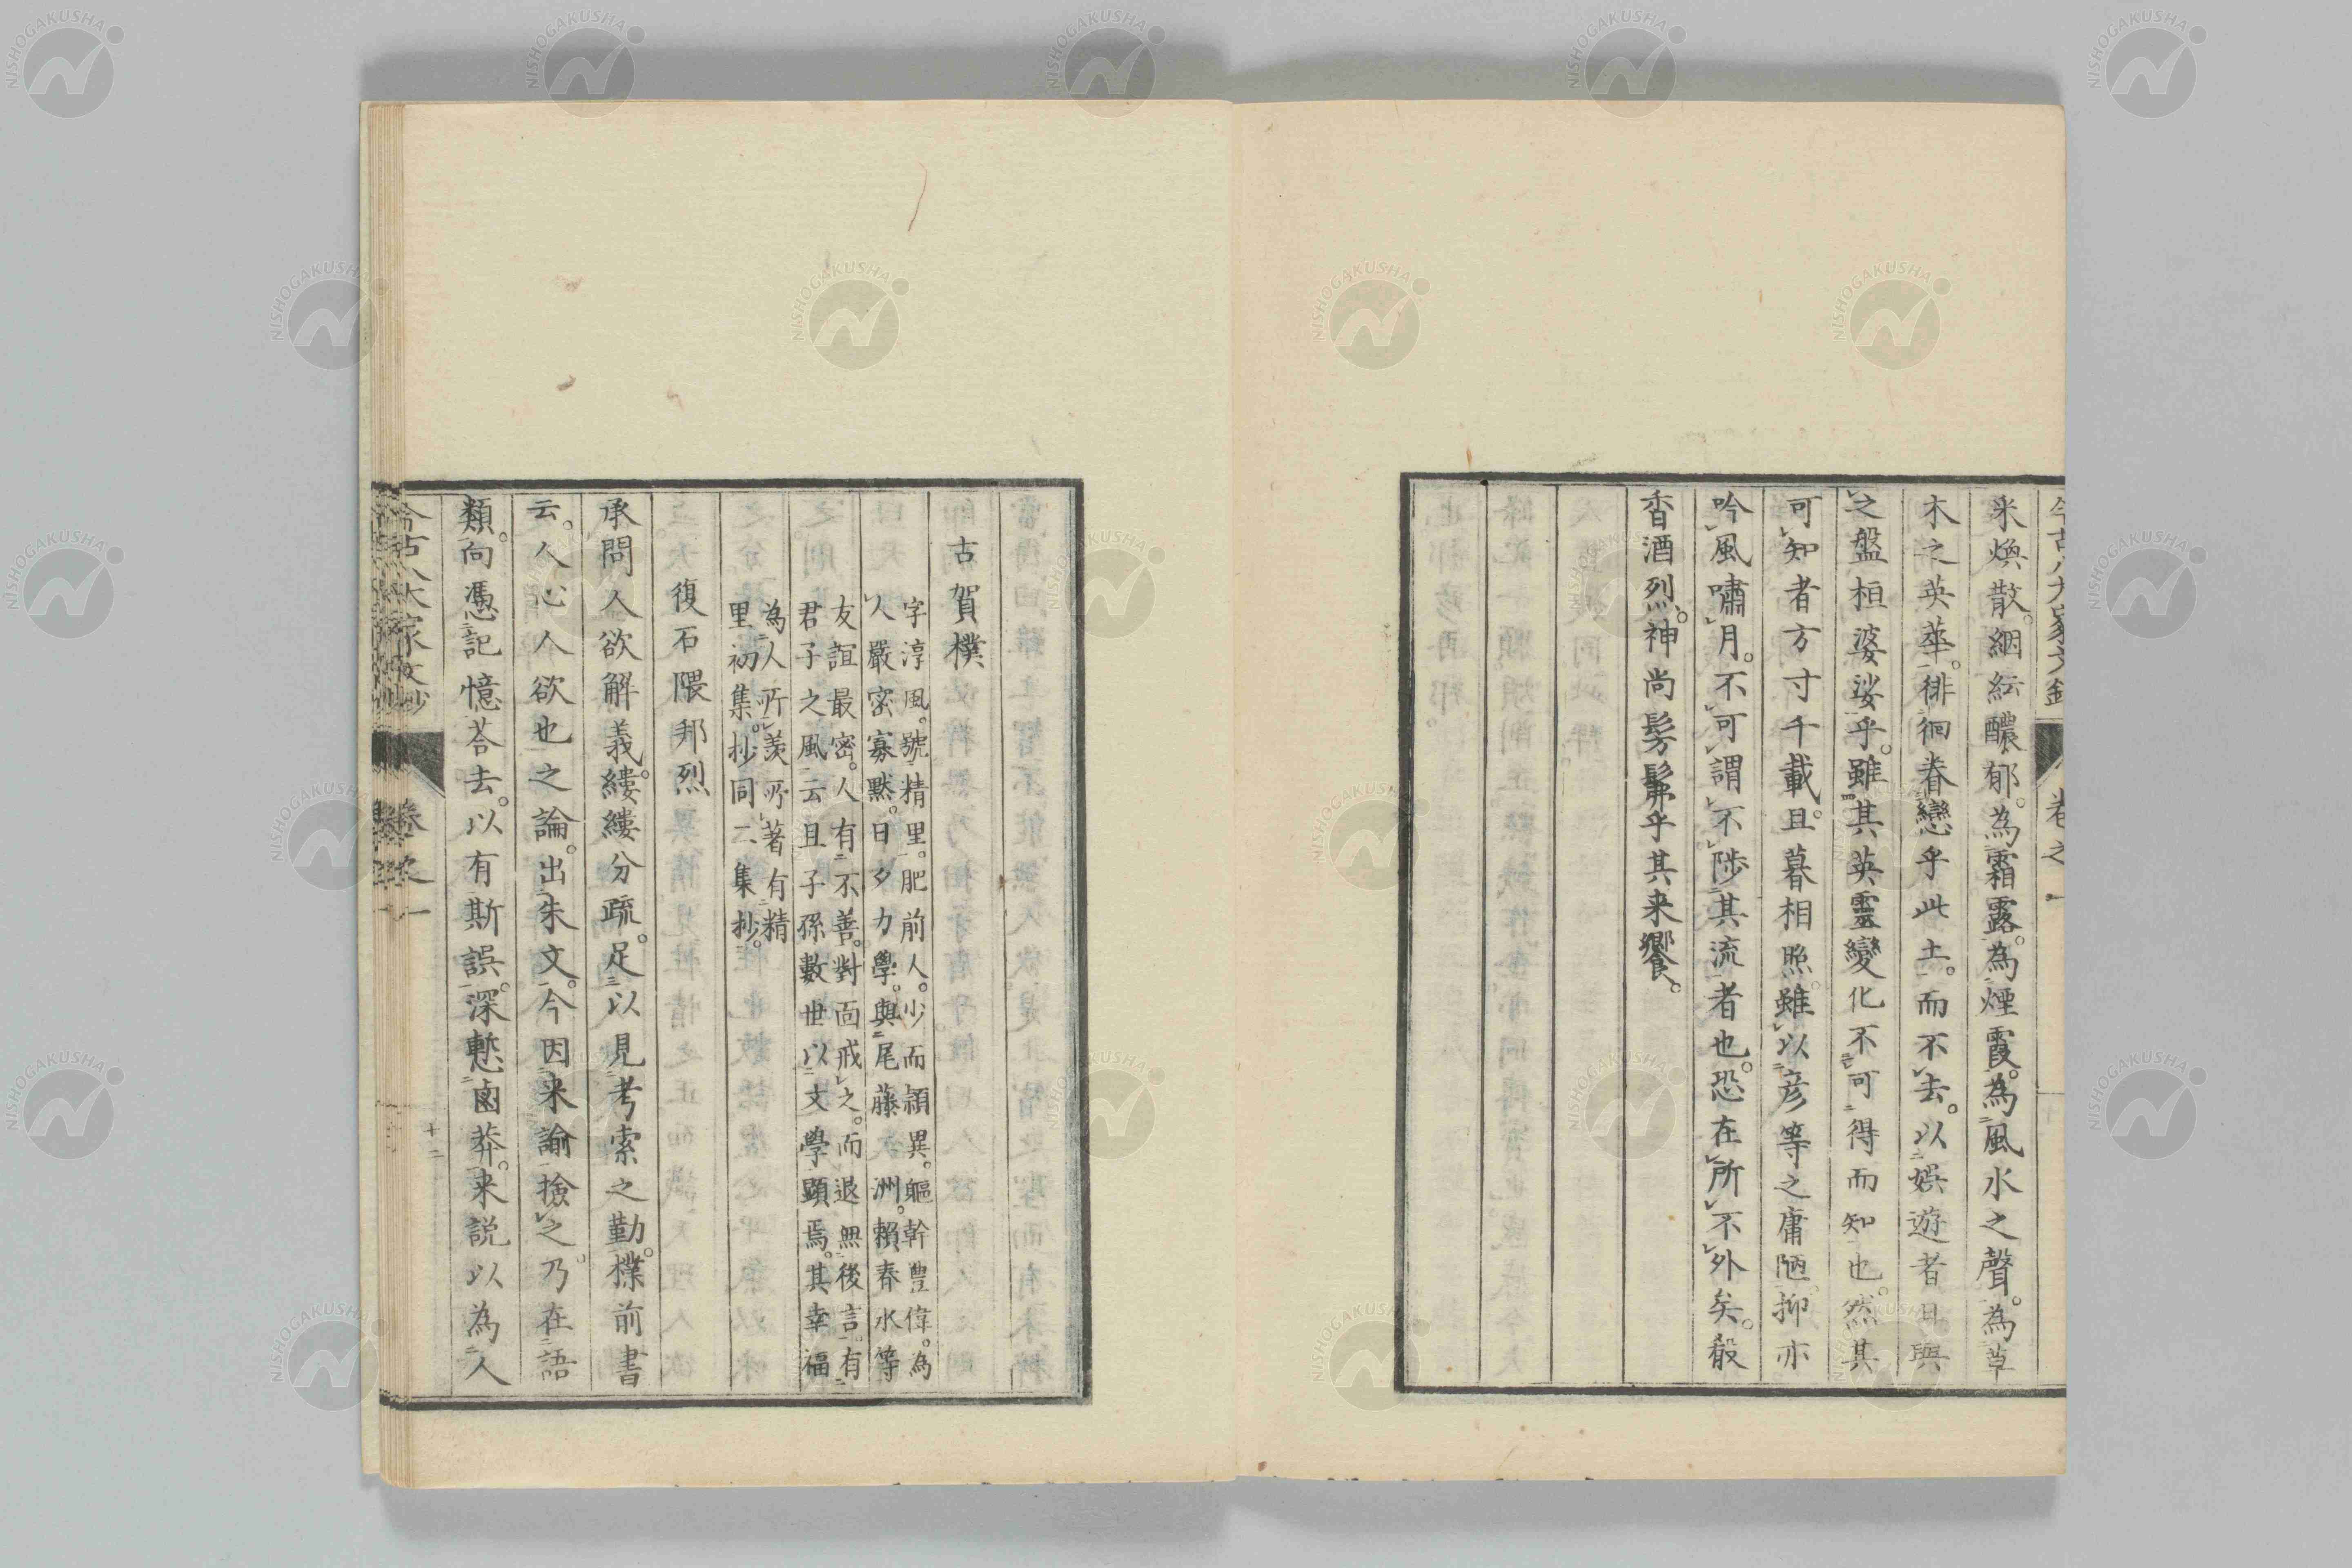 采煥散。絪紜醲郁。為霜露。為煙霞。為風水之聲。為草
木之英華。徘徊眷戀乎此土。而不去。以娯遊者日與
之盤桓婆娑乎。雖其英靈變化不可得而知也。然其
可知者方寸千載。且暮相照。雖以彦等之庸陋。抑亦
吟風嘯月。不可謂不陟其流者也。恐在所不外矣。殽
香酒烈。神尚髣髴乎其来饗。
古賀樸
字淳風。號精里。肥前人。少而頴異。軀幹豊偉。為
人嚴密寡黙。日夕力學。與尾藤洲。賴春水等
友誼最密。人有不善。對面戒之。而退無後言。有
君子之風云且子孫數世以文學顕焉。其幸福
為人所羨所著有精
里初集。抄同二集抄。
復石隈邦烈
承問人欲解義。縷縷分疏。足以見考索之勤。樸前書
云。人心人欲也之論。出朱文。今因来諭撿之乃在語
類。向憑記憶荅去。以有斯誤。深慙鹵莽。来説以為人
卷之一
十二
NISHOGAKUSHA